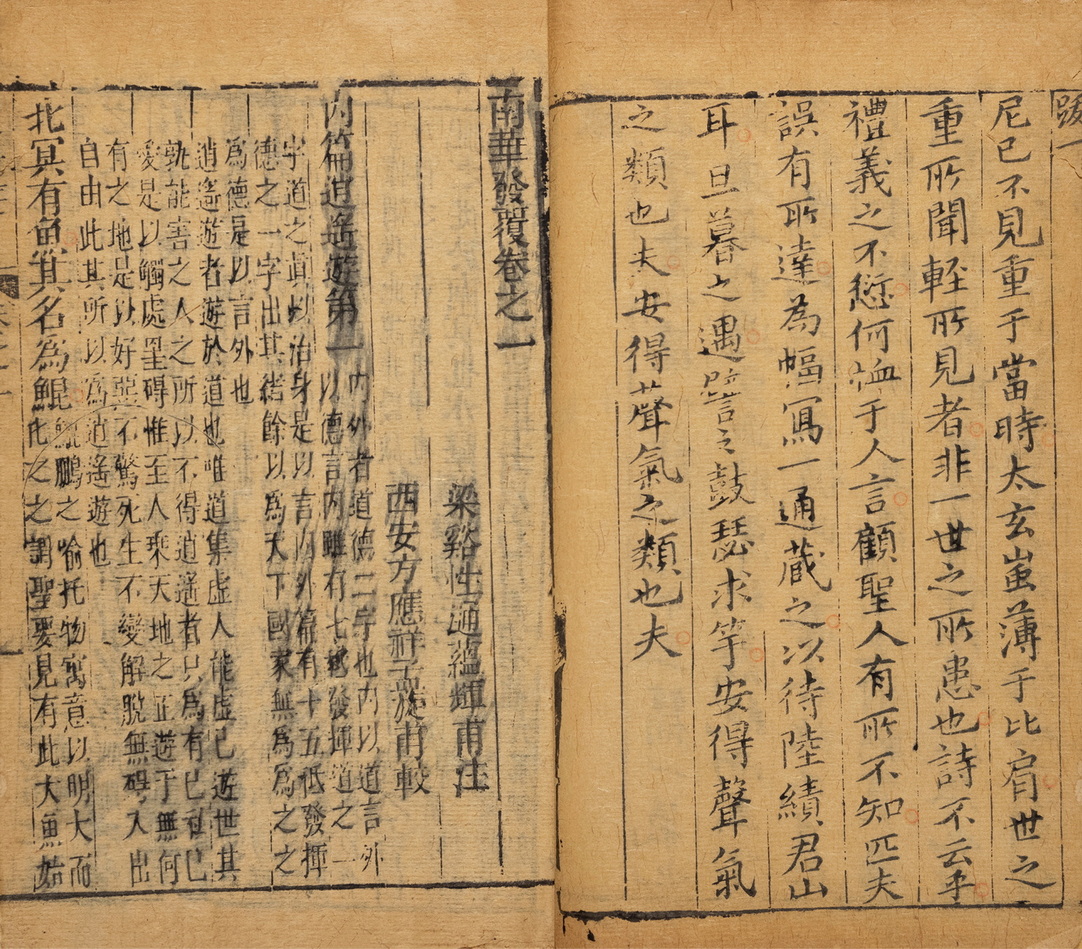 跋一
尼已不見重于當時太玄蚩薄于比肩世之
重所聞輕所見者非一世之所患也詩不云乎
禮義之不愆何恤于人言顧聖人有所不知匹夫
誤有所達為幅寫一通蔵之以待陸績君山
耳旦暮之遇譬之鼓瑟求竽安得聲氣
之類也夫安得聲氣之類也夫
南華發覆卷之一
梁谿性通蘊輝甫注
西安方應祥子旋甫較
內篇逍遙遊第一
內外者道德二字也內以道言外
以德言內雖有七秪發揮道之一
字道之眞以治身是以言內外篇有十五秪發揮
德之一字出其緒餘以爲天下國家無爲爲之之
爲德是以言外也
逍遙遊者遊於道也唯道集虛人能虛已遊世其
孰能害之人之所以不得逍遙者只爲有已有已
愛是以觸處罣碍惟至人乘天地之正遊于無何
有之地是以好惡不驚死生不變解脫無碍入出
自由此其所以爲逍遙遊也
北冥有魚其名爲鯤
鯤鵬之喻托物寓意以明大而
化之之謂聖要見有此大魚始